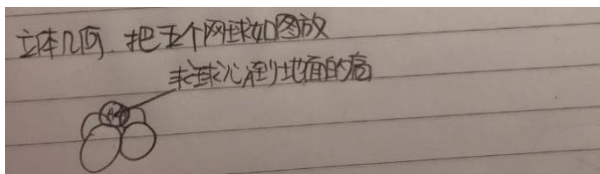 立体几何 把五个网球如图放
求球心到地面的高